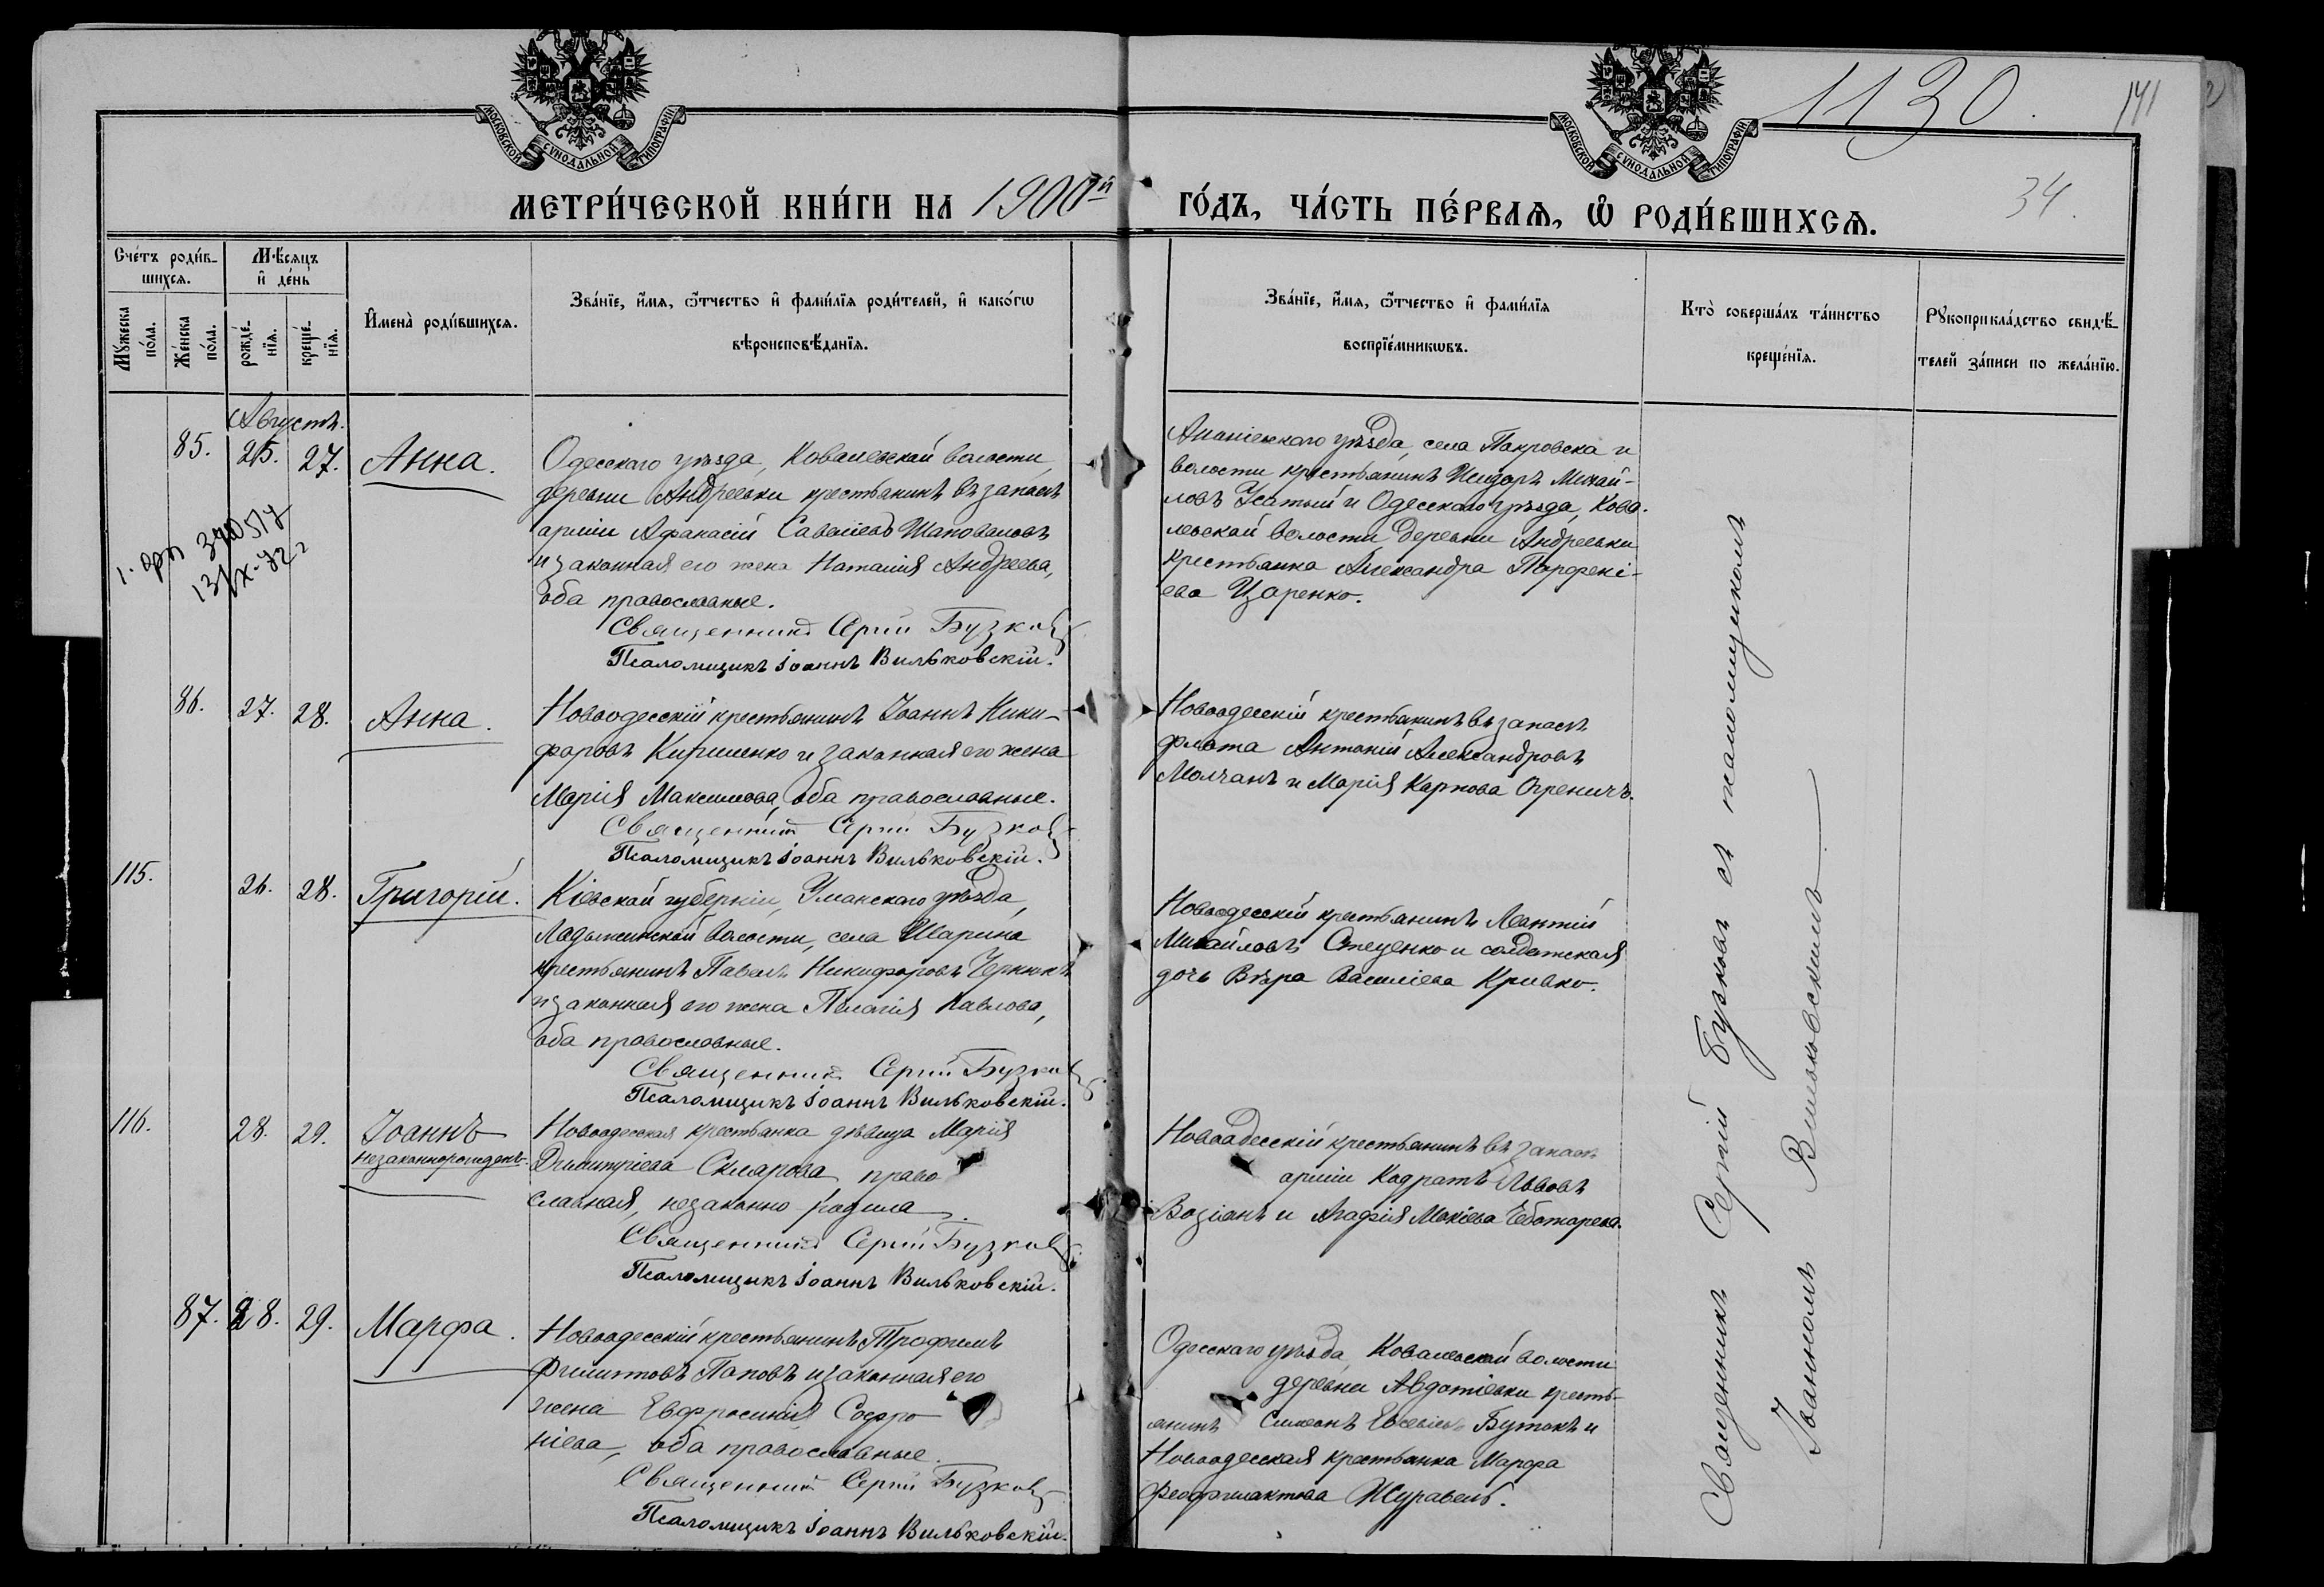 1130.
141
34.
МОСКОВСКОЙ СѴНОДАЛЬНОЙ ТИПОГРАФІИ
МОСКОВСКОЙ СѴНОДАЛЬНОЙ ТИПОГРАФІИ
МЕТРИ́ЧЕСКОЙ КНИ́ГИ НА 1900й ГО́ДЪ, ЧА́СТЬ ПЕ́РВАѦ, Ѽ РОДИ́ВШИХСѦ.
Сче́тъ роди́в-
шихсѧ.
Мѣ́сѧцъ
и҆ де́нь
Мꙋ́жеска
по́ла.
Же́нска
по́ла.
рожде́-
нїѧ.
креще́-
нїѧ.
И҆мена̀ роди́вшихсѧ.
Зва́нїе, и҆́мѧ, ѻ҆́тчество и҆ фамі́лїѧ роди́телей, и҆ како́гѡ
вѣроисповѣ́данїѧ.
Зва́нїе, и҆́мѧ, ѻ҆́тчество и҆ фамі́лїѧ
воспрїе́мникѡвъ.
Кто̀ соверша́лъ та́инство
креще́нїѧ.
Рꙋкоприкла́дство свидѣ́-
телей за́писи по жела́нїю.
Августъ.
85. 25. 27. Анна.
Одесскаго уѣзда, Ковалевской волости,
деревни Андреевки крестьянинъ въ запасѣ
арміи Афанасій Савеліевъ Шаповаловъ
и законная его жена Наталія Андреева,
оба православные.
Священникъ Сергій Бузковъ
Псаломщикъ Іоаннъ Вильковскій.
Ананіевскаго уѣзда, села Покровска и
волости крестьянинъ Исидоръ Михай-
ловъ Усатый и Одесскаго уѣзда, Кова-
левской волости деревни Андреевки
крестьянка Александра Порфирі-
ева Царенко.
86. 27. 28. Анна.
Новоодесскій крестьянинъ Іоаннъ Ники-
форовъ Кириленко и законная его жена
Марія Максимова, оба православные.
Священникъ Сергій Бузковъ
Псаломщикъ Іоаннъ Вильковскій.
Новоодесскій крестьянинъ въ запасѣ
флота Антоній Александровъ
Молчанъ и Марія Карпова Огреничъ.
115. 26. 28. Григорій.
Кіевской губерніи, Уманскаго уѣзда,
Ладыжинской волости, села Шарина
крестьянинъ Павелъ Никифоровъ Чернюкъ
и законная его жена Пелагія Павлова,
оба православные.
Священникъ Сергій Бузковъ
Псаломщикъ Іоаннъ Вильковскій.
Новоодесскій крестьянинъ Леонтій
Михайловъ Стеценко и солдатская
дочь Вѣра Василіева Кривко.
116. 28. 29. Іоаннъ
незаконнорожден.
Новоодесская крестьянка дѣвица Марія
Димитріева Склярова, право
славная, незаконно родила.
Священникъ Сергій Бузковъ
Псаломщикъ Іоаннъ Вильковскій.
Новоодесскій крестьянинъ въ запасѣ
арміи Кодратъ Львовъ
Возіанъ и Агафія Мокіева Чеботарева.
87. 28. 29. Марфа.
Новоодесскій крестьянинъ Трофимъ
Филипповъ Поповъ и законная его
жена Евфросинія Софро
ніева, оба православные.
Священникъ Сергій Бузковъ
Псаломщикъ Іоаннъ Вильковскій.
Одесскаго уѣзда, Ковалевской волости
деревни Авдотіевки кресть-
янинъ Симеонъ Евсевіевъ Бутокъ и
Новоодесская крестьянка Марфа
Феофилактова Журавель.
Священникъ Сергій Бузковъ съ псаломщикомъ
Іоанномъ Вильковскимъ